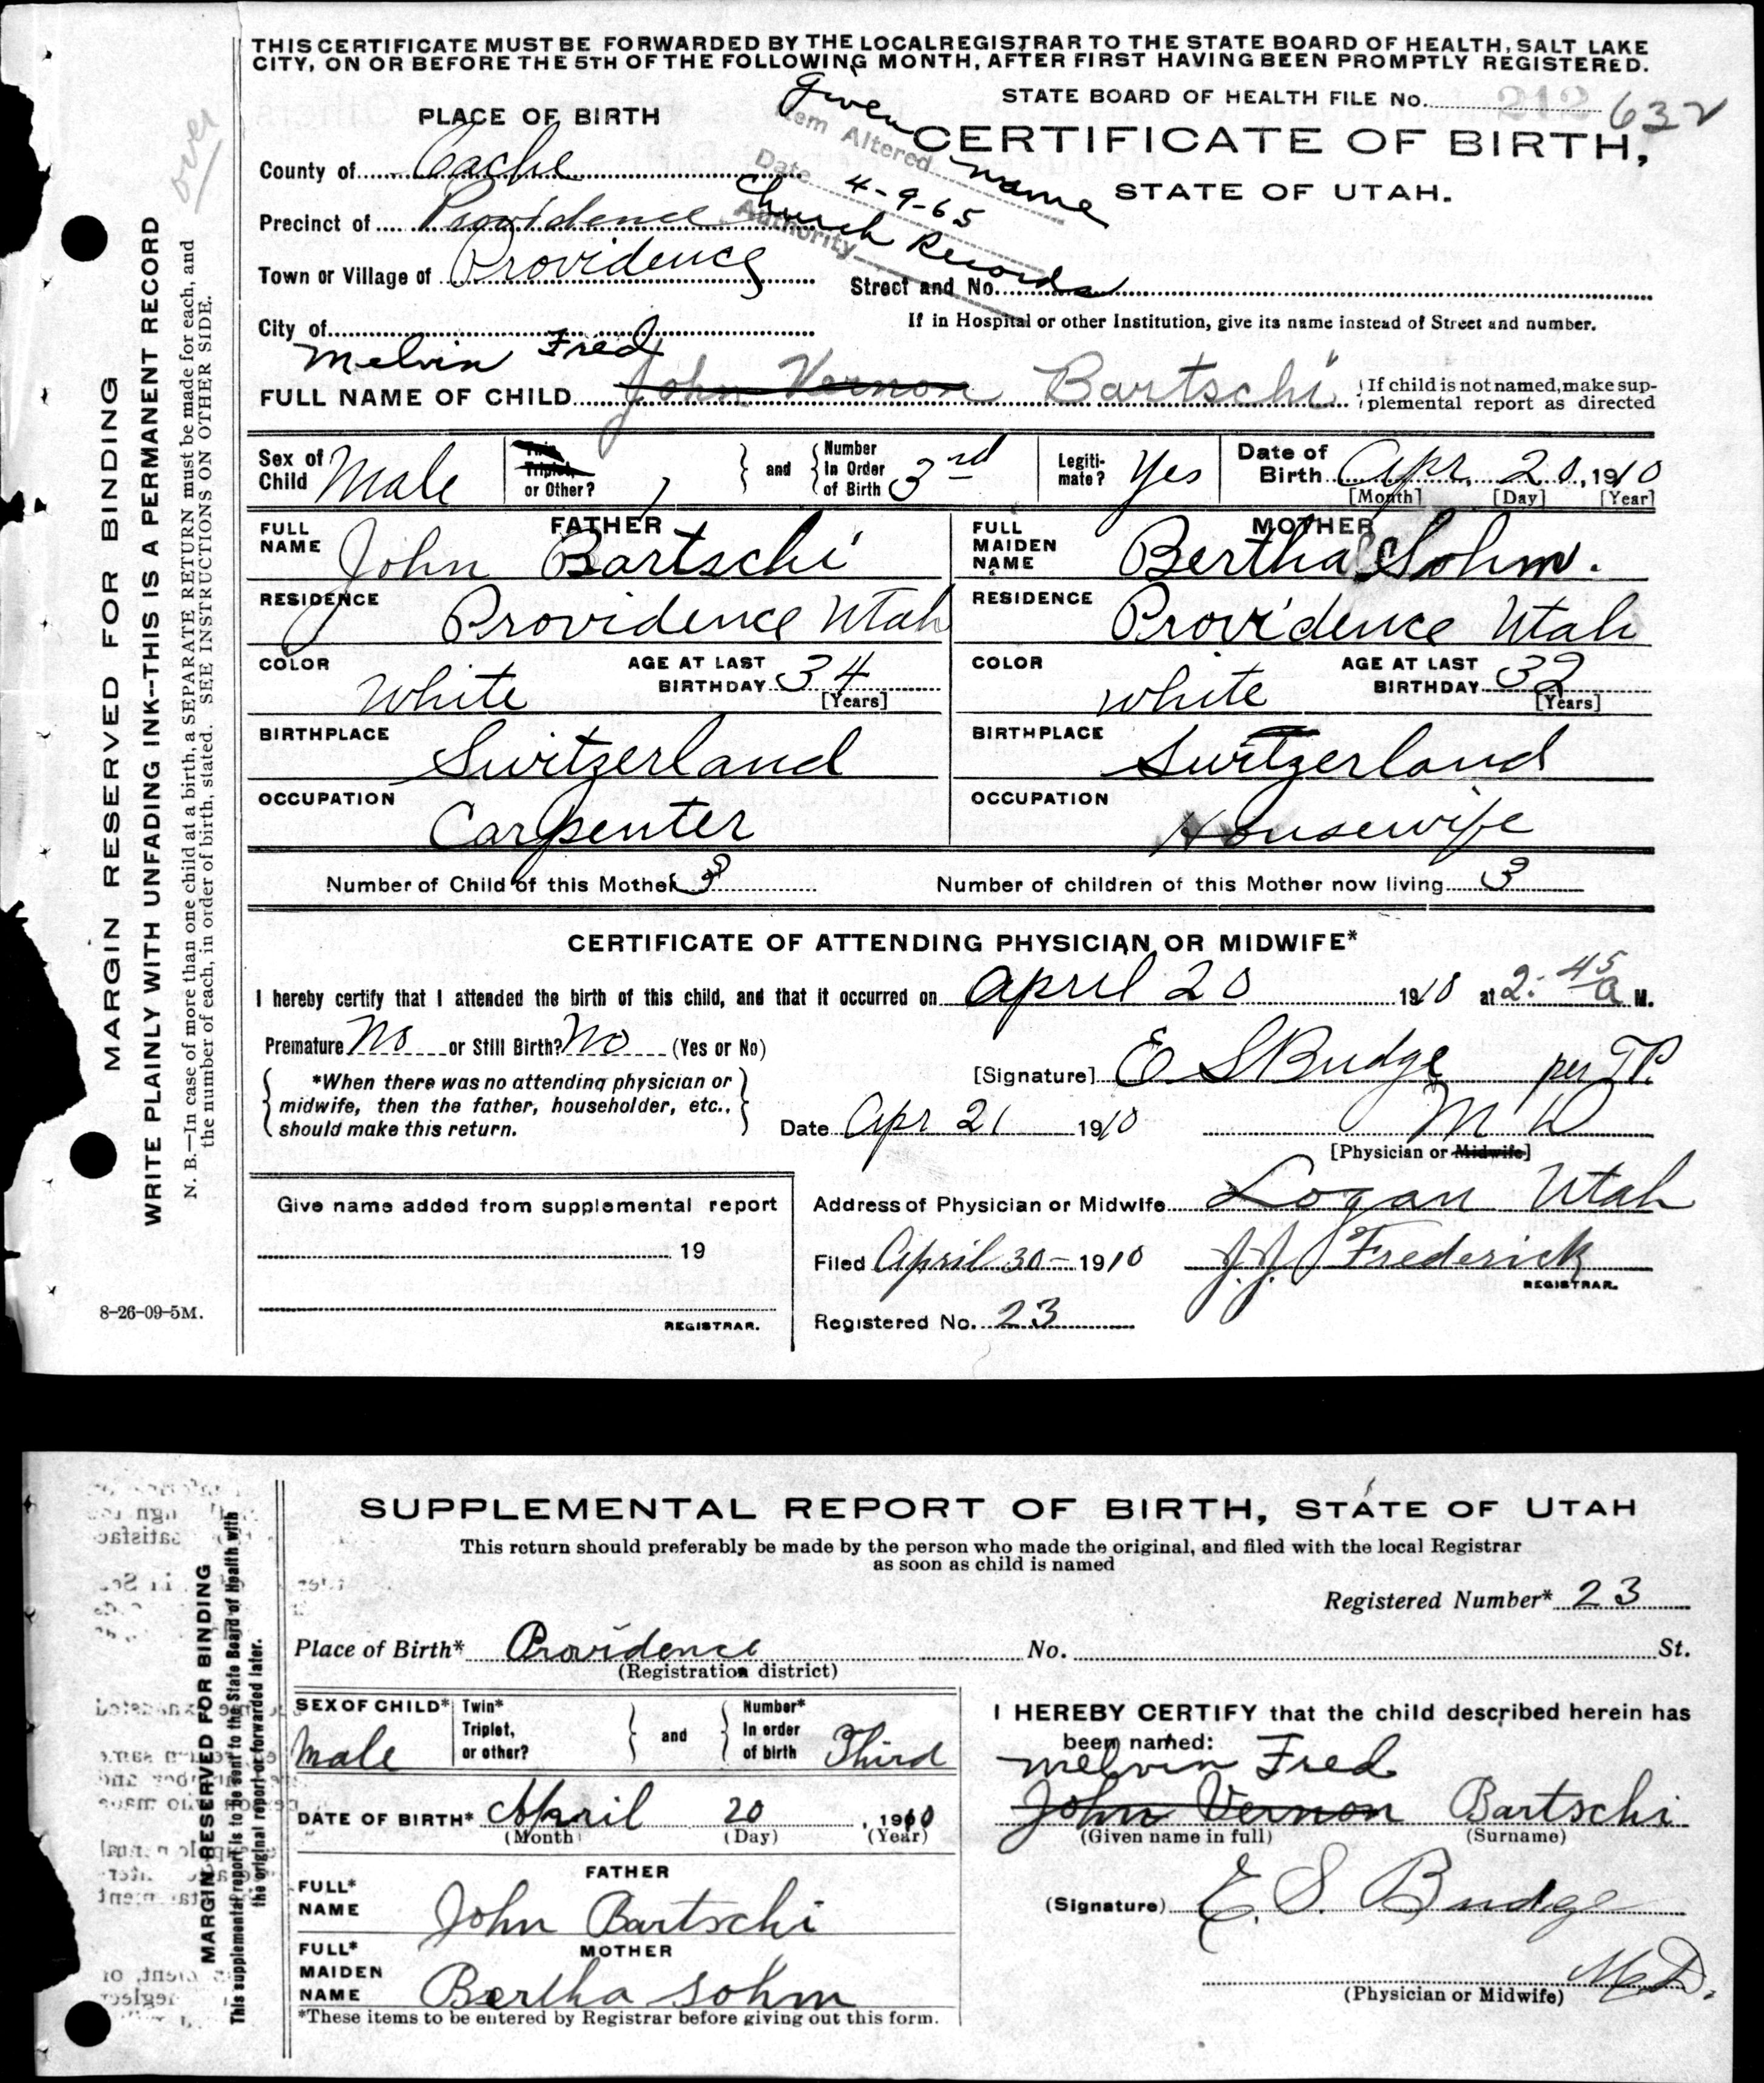 THIS CERTIFICATE MUST BE FORWARDED BY THE LOCAL REGISTRAR TO THE STATE BOARD OF HEALTH, SALT LAKE
CITY, ON OR BEFORE THE 5TH OF THE FOLLOWING MONTH, AFTER FIRST HAVING BEEN PROMPTLY REGISTERED.
STATE BOARD OF HEALTH FILE No. 212 632
PLACE OF BIRTH
CERTIFICATE OF BIRTH,
STATE OF UTAH.
Item Altered Given name
Date 4-9-65
Authority Church Records
over
County of Cache
Precinct of Providence
Town or Village of Providence
Street and No.
City of
If in Hospital or other Institution, give its name instead of Street and number.
Melvin Fred
FULL NAME OF CHILD John Vernon Bartschi
If child is not named, make sup-
plemental report as directed
Sex of Child Male
Twin, Triplet, or Other?
and
Number In Order of Birth 3rd
Legiti-mate? Yes
Date of Birth Apr. 20, 1910
[Month] [Day] [Year]
FATHER
FULL NAME John Bartschi
RESIDENCE Providence Utah
COLOR White
AGE AT LAST BIRTHDAY 34
[Years]
BIRTHPLACE Switzerland
OCCUPATION Carpenter
MOTHER
FULL MAIDEN NAME Bertha Sohm.
RESIDENCE Providence Utah
COLOR White
AGE AT LAST BIRTHDAY 32
[Years]
BIRTHPLACE Switzerland
OCCUPATION Housewife
Number of Child of this Mother 3
Number of children of this Mother now living 3
CERTIFICATE OF ATTENDING PHYSICIAN OR MIDWIFE*
I hereby certify that I attended the birth of this child, and that it occurred on April 20 1910 at 2:45 a M.
Premature No or Still Birth? No (Yes or No)
*When there was no attending physician or
midwife, then the father, householder, etc.,
should make this return.
[Signature] E S Budge per T.P.
Date Apr 21 1910
M D
[Physician or Midwife]
Give name added from supplemental report
19
REGISTRAR.
Address of Physician or Midwife Logan Utah
Filed April 30- 1910 J.J. Frederick
REGISTRAR.
Registered No. 23
8-26-09-5M.
MARGIN RESERVED FOR BINDING
WRITE PLAINLY WITH UNFADING INK--THIS IS A PERMANENT RECORD
N. B.—In case of more than one child at a birth, a SEPARATE RETURN must be made for each, and
the number of each, in order of birth, stated. SEE INSTRUCTIONS ON OTHER SIDE.
SUPPLEMENTAL REPORT OF BIRTH, STATE OF UTAH
This return should preferably be made by the person who made the original, and filed with the local Registrar
as soon as child is named
Registered Number* 23
Place of Birth* Providence No. St.
(Registration district)
SEX OF CHILD* Male
Twin* Triplet, or other?
and
Number* In order of birth Third
DATE OF BIRTH* April 20, 1910
(Month) (Day) (Year)
FATHER
FULL* NAME John Bartschi
MOTHER
FULL* MAIDEN NAME Bertha Sohm
*These items to be entered by Registrar before giving out this form.
I HEREBY CERTIFY that the child described herein has
been named:
Melvin Fred
John Vernon Bartschi
(Given name in full) (Surname)
(Signature) E. S. Budge
M.D.
(Physician or Midwife)
MARGIN RESERVED FOR BINDING
This supplemental report is to be sent to the State Board of Health with
the original report or forwarded later.